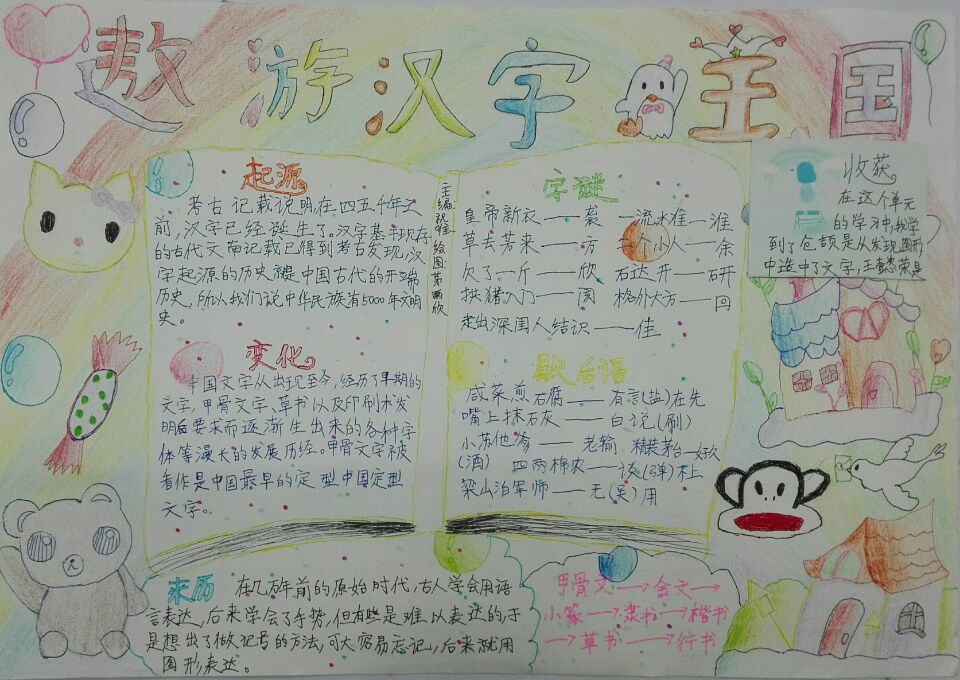 遨游汉字王国
起源
考古记载说明在四五千年之
前,汉字已经诞生了。汉字基于现存
的古代文商记载已得到考古发现,汉
字起源的历史就是中国古代的开端
历史,所以我们说中华民族有5000年文明
史。
变化
中国文字从出现至今,经历了早期的
文字,甲骨文字、草书以及印刷术发
明后要求而逐渐生出来的各种字
体等漫长的发展历经。甲骨文字被
看作是中国最早的定型中国定型
文字。
主编:
绘图:
字谜
皇帝新衣——袭 一流水准——淮
草去芳来——方 三个小人——余
欠了一斤——欣 石达开——研
拱猪入门——阂 格外大方——回
走出深闺人结识——佳
歇后语
咸菜煎石腐——有言(盐)在先
嘴上抹石灰——白说(刷)
小苏他爹——老输 精装茅台—好久
(酒) 四两棉农——谈(弹)不上
梁山泊军师——无(吴)用
收获
在这个单元
的学习中,我学
到了仓颉是从发现图形
中造中了文字,
来历 在几万年前的原始时代,古人学会用语
言表达,后来学会了手势,但有些是难以表达的于
是想出了做记号的方法,可太容易忘记,后来就用
图形表达。
甲骨文→金文→
小篆→隶书→楷书
→草书→行书